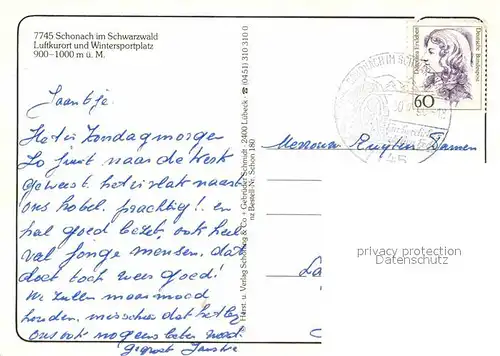 7745 Schonach im Schwarzwald
Luftkurort und Wintersportplatz
900–1000 m ü. M.
Jaantje.
Het is Zondagmorgen
Zo juist naar de Kerk
geweest. het is vlak naast
ons hotel. prachtig! en
hal goed bezet, ook heel
val jonge mensen, dat
doet toch weer goed!
We zullen maar moed
houden. misschien dat het bij
ons ook nog eens beter word.
gegroet
Horst u. Verlag Schöning & Co + Gebrüder Schmidt · 2400 Lübeck · ☎ (0451) 310 310 0
nz Bestell-Nr. Schon 180
Dorothea Erxleben
Deutsche Bundespost
60
Mevrouw Damen
privacy protection
Datenschutz